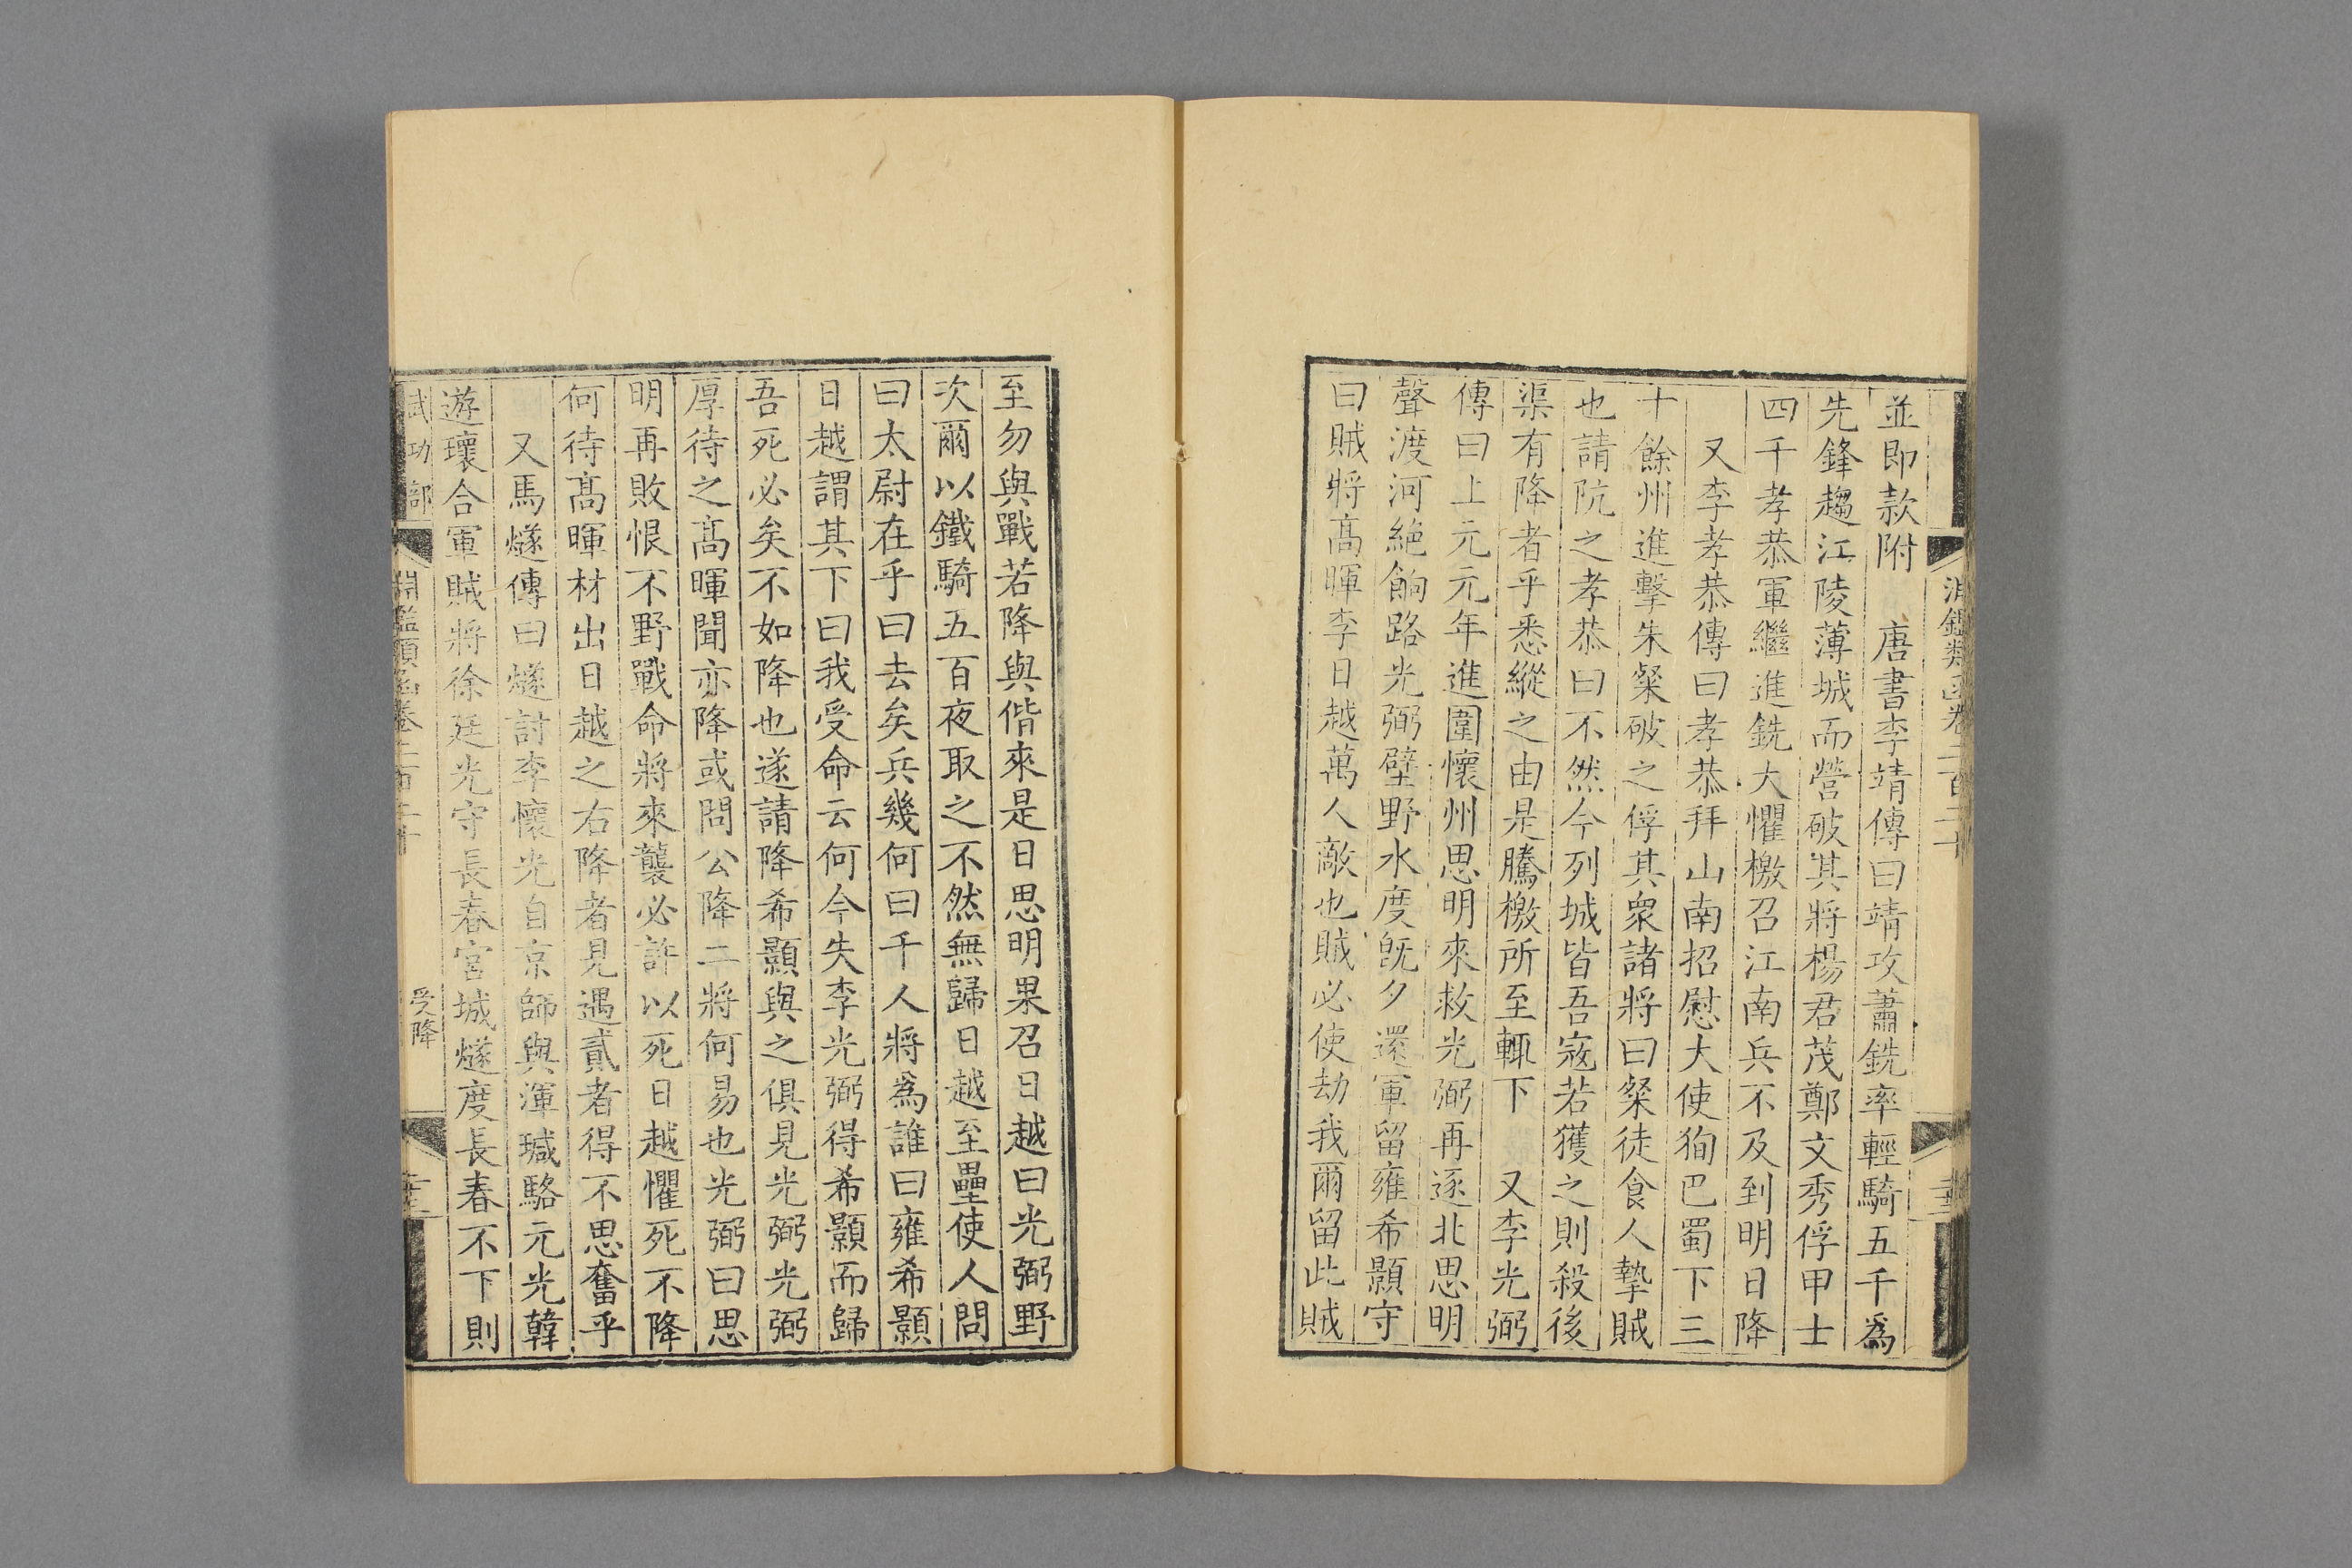 並即款附　唐書李靖傳曰靖攻蕭銑率輕騎五千爲
先鋒趨江陵薄城而營破其將楊君茂鄭文秀俘甲士
四千孝恭軍繼進銑大懼檄召江南兵不及到明日降
又李孝恭傳曰孝恭拜山南招慰大使狥巴蜀下三
十餘州進擊朱粲破之俘其衆諸將曰粲徒食人摯賊
也請阬之孝恭曰不然今列城皆吾寇若獲之則殺後
渠有降者乎悉縱之由是騰檄所至輒下　又李光弼
傳曰上元元年進圍懷州思明來救光弼再逐北思明
聲渡河絶餉路光弼壁野水度旣夕還軍留雍希顥守
曰賊將髙暉李日越萬人敵也賊必使劫我爾留此賊
至勿與戰若降與偕來是日思明果召日越曰光弼野
次爾以鐵騎五百夜取之不然無歸日越至壘使人問
曰太尉在乎曰去矣兵幾何曰千人將爲誰曰雍希顥
日越謂其下曰我受命云何今失李光弼得希顥而歸
吾死必矣不如降也遂請降希顥與之俱見光弼光弼
厚待之髙暉聞亦降或問公降二將何易也光弼曰思
明再敗恨不野戰命將來襲必許以死日越懼死不降
何待髙暉材出日越之右降者見遇貳者得不思奮乎
又馬燧傳曰燧討李懷光自京師與渾瑊駱元光韓
遊瓌合軍賊將徐廷光守長春宮城燧度長春不下則
武功部
淵鑑類函卷二百二十
受降